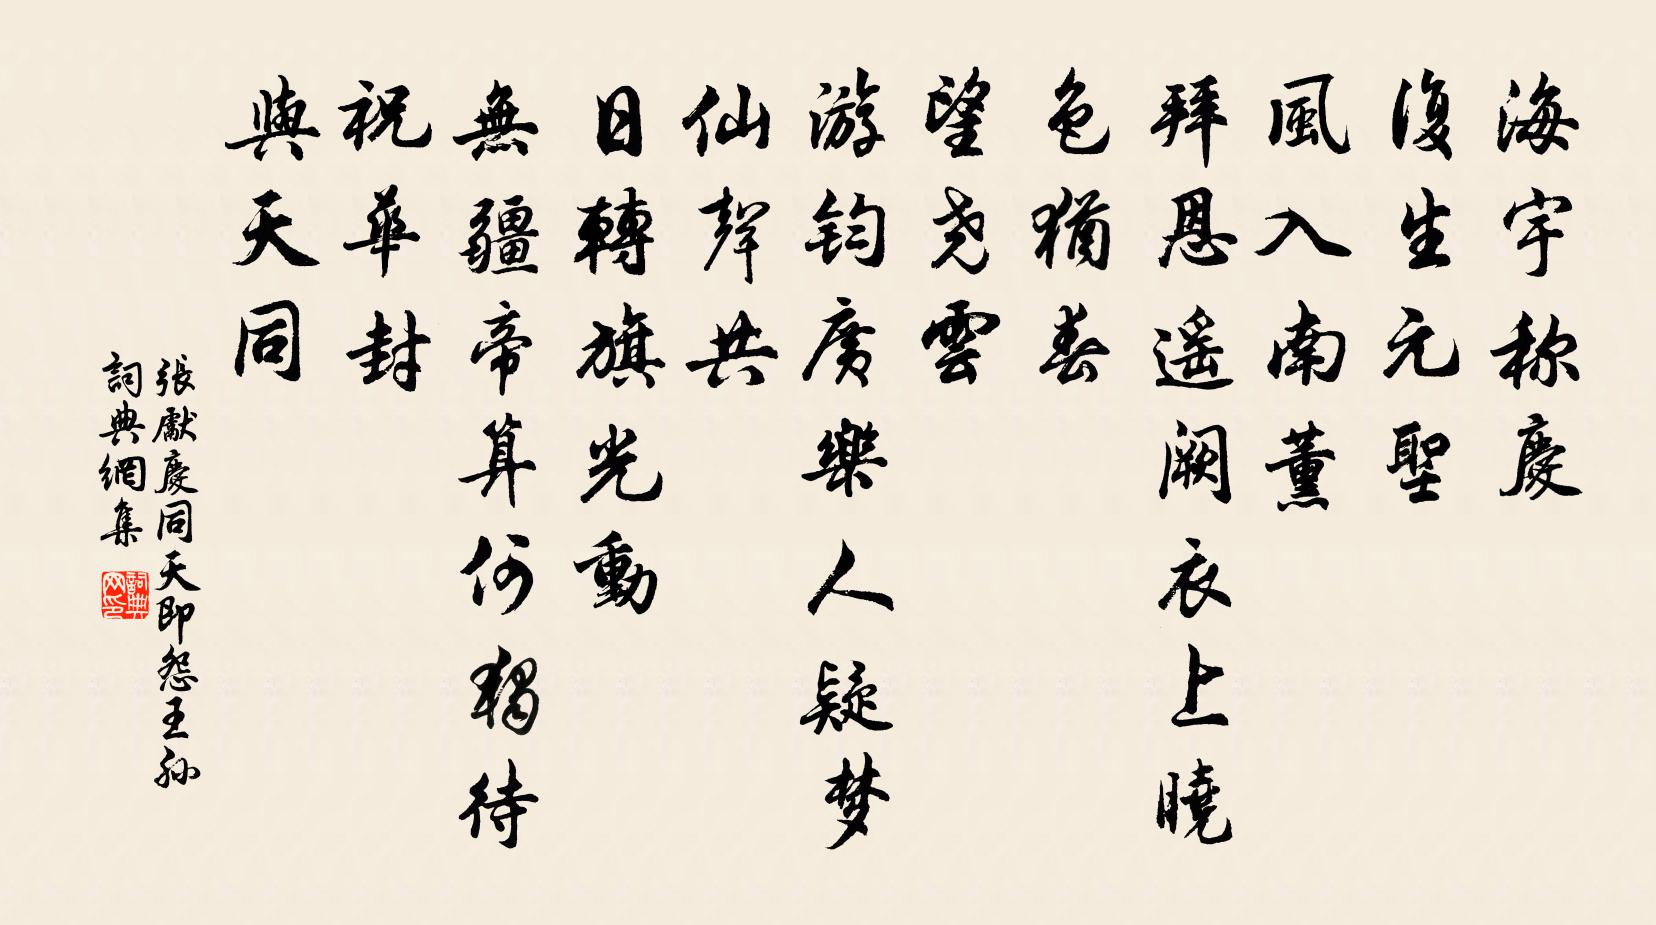 海宇称慶
復生元聖
風入南薰
拜恩遥阙衣上曉
色猶春
望尧雲
游鈞廣樂人疑梦
仙聲共
日轉旗光動
無疆帝算何獨待
祝華封
與天同
張獻慶同天即怨王孙
詞典網集
詞典网印